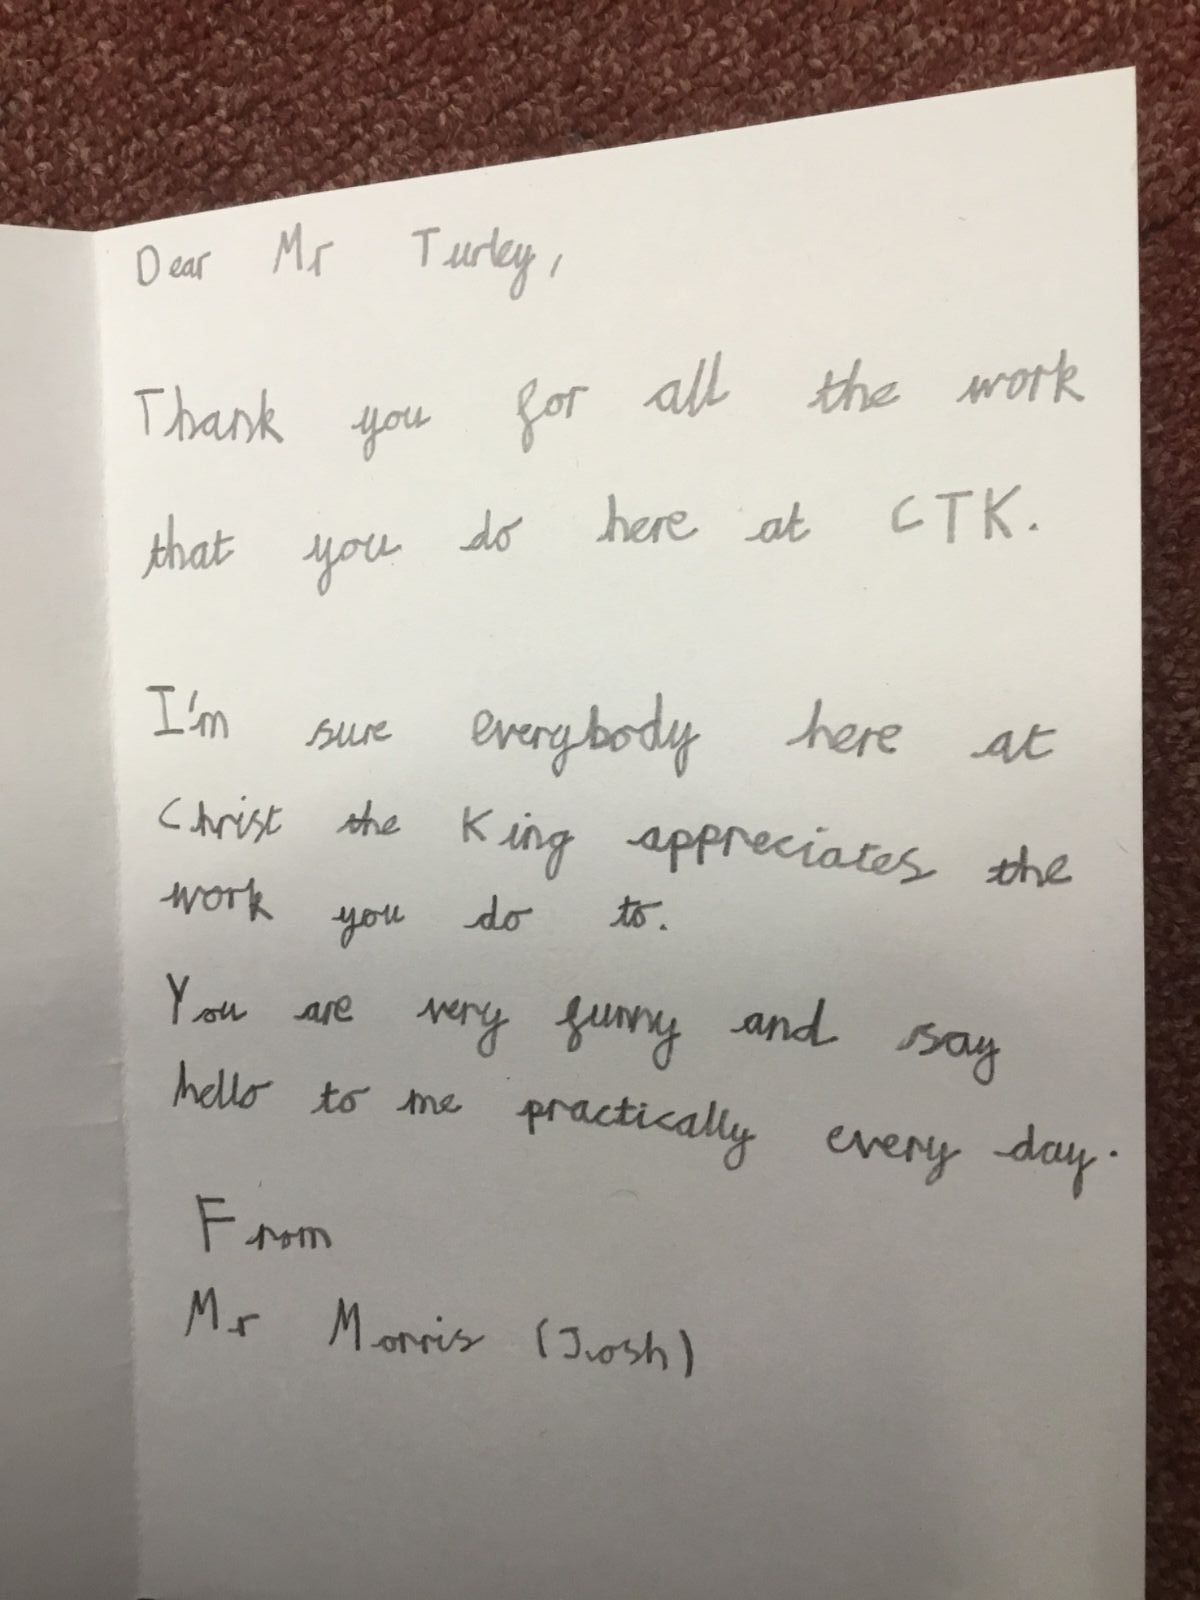 Dear Mr Turley,
Thank you for all the work
that you do here at CTK.
I'm sure everybody here at
Christ the King appreciates the
work you do to.
You are very funny and say
hello to me practically every day.
From
Mr Morris (Josh)